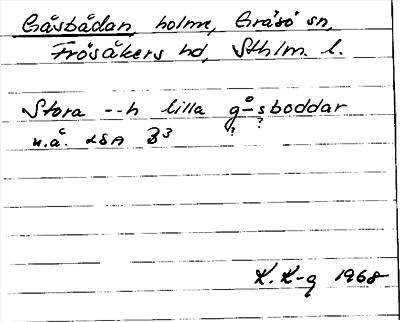 Gåsbådan, holme, Gräsö sn,
Frösåkers hd, Sthlm. l.
Stora --h lilla gåsboddar
? ?
u.å. LSA B3
K. K-g 1968